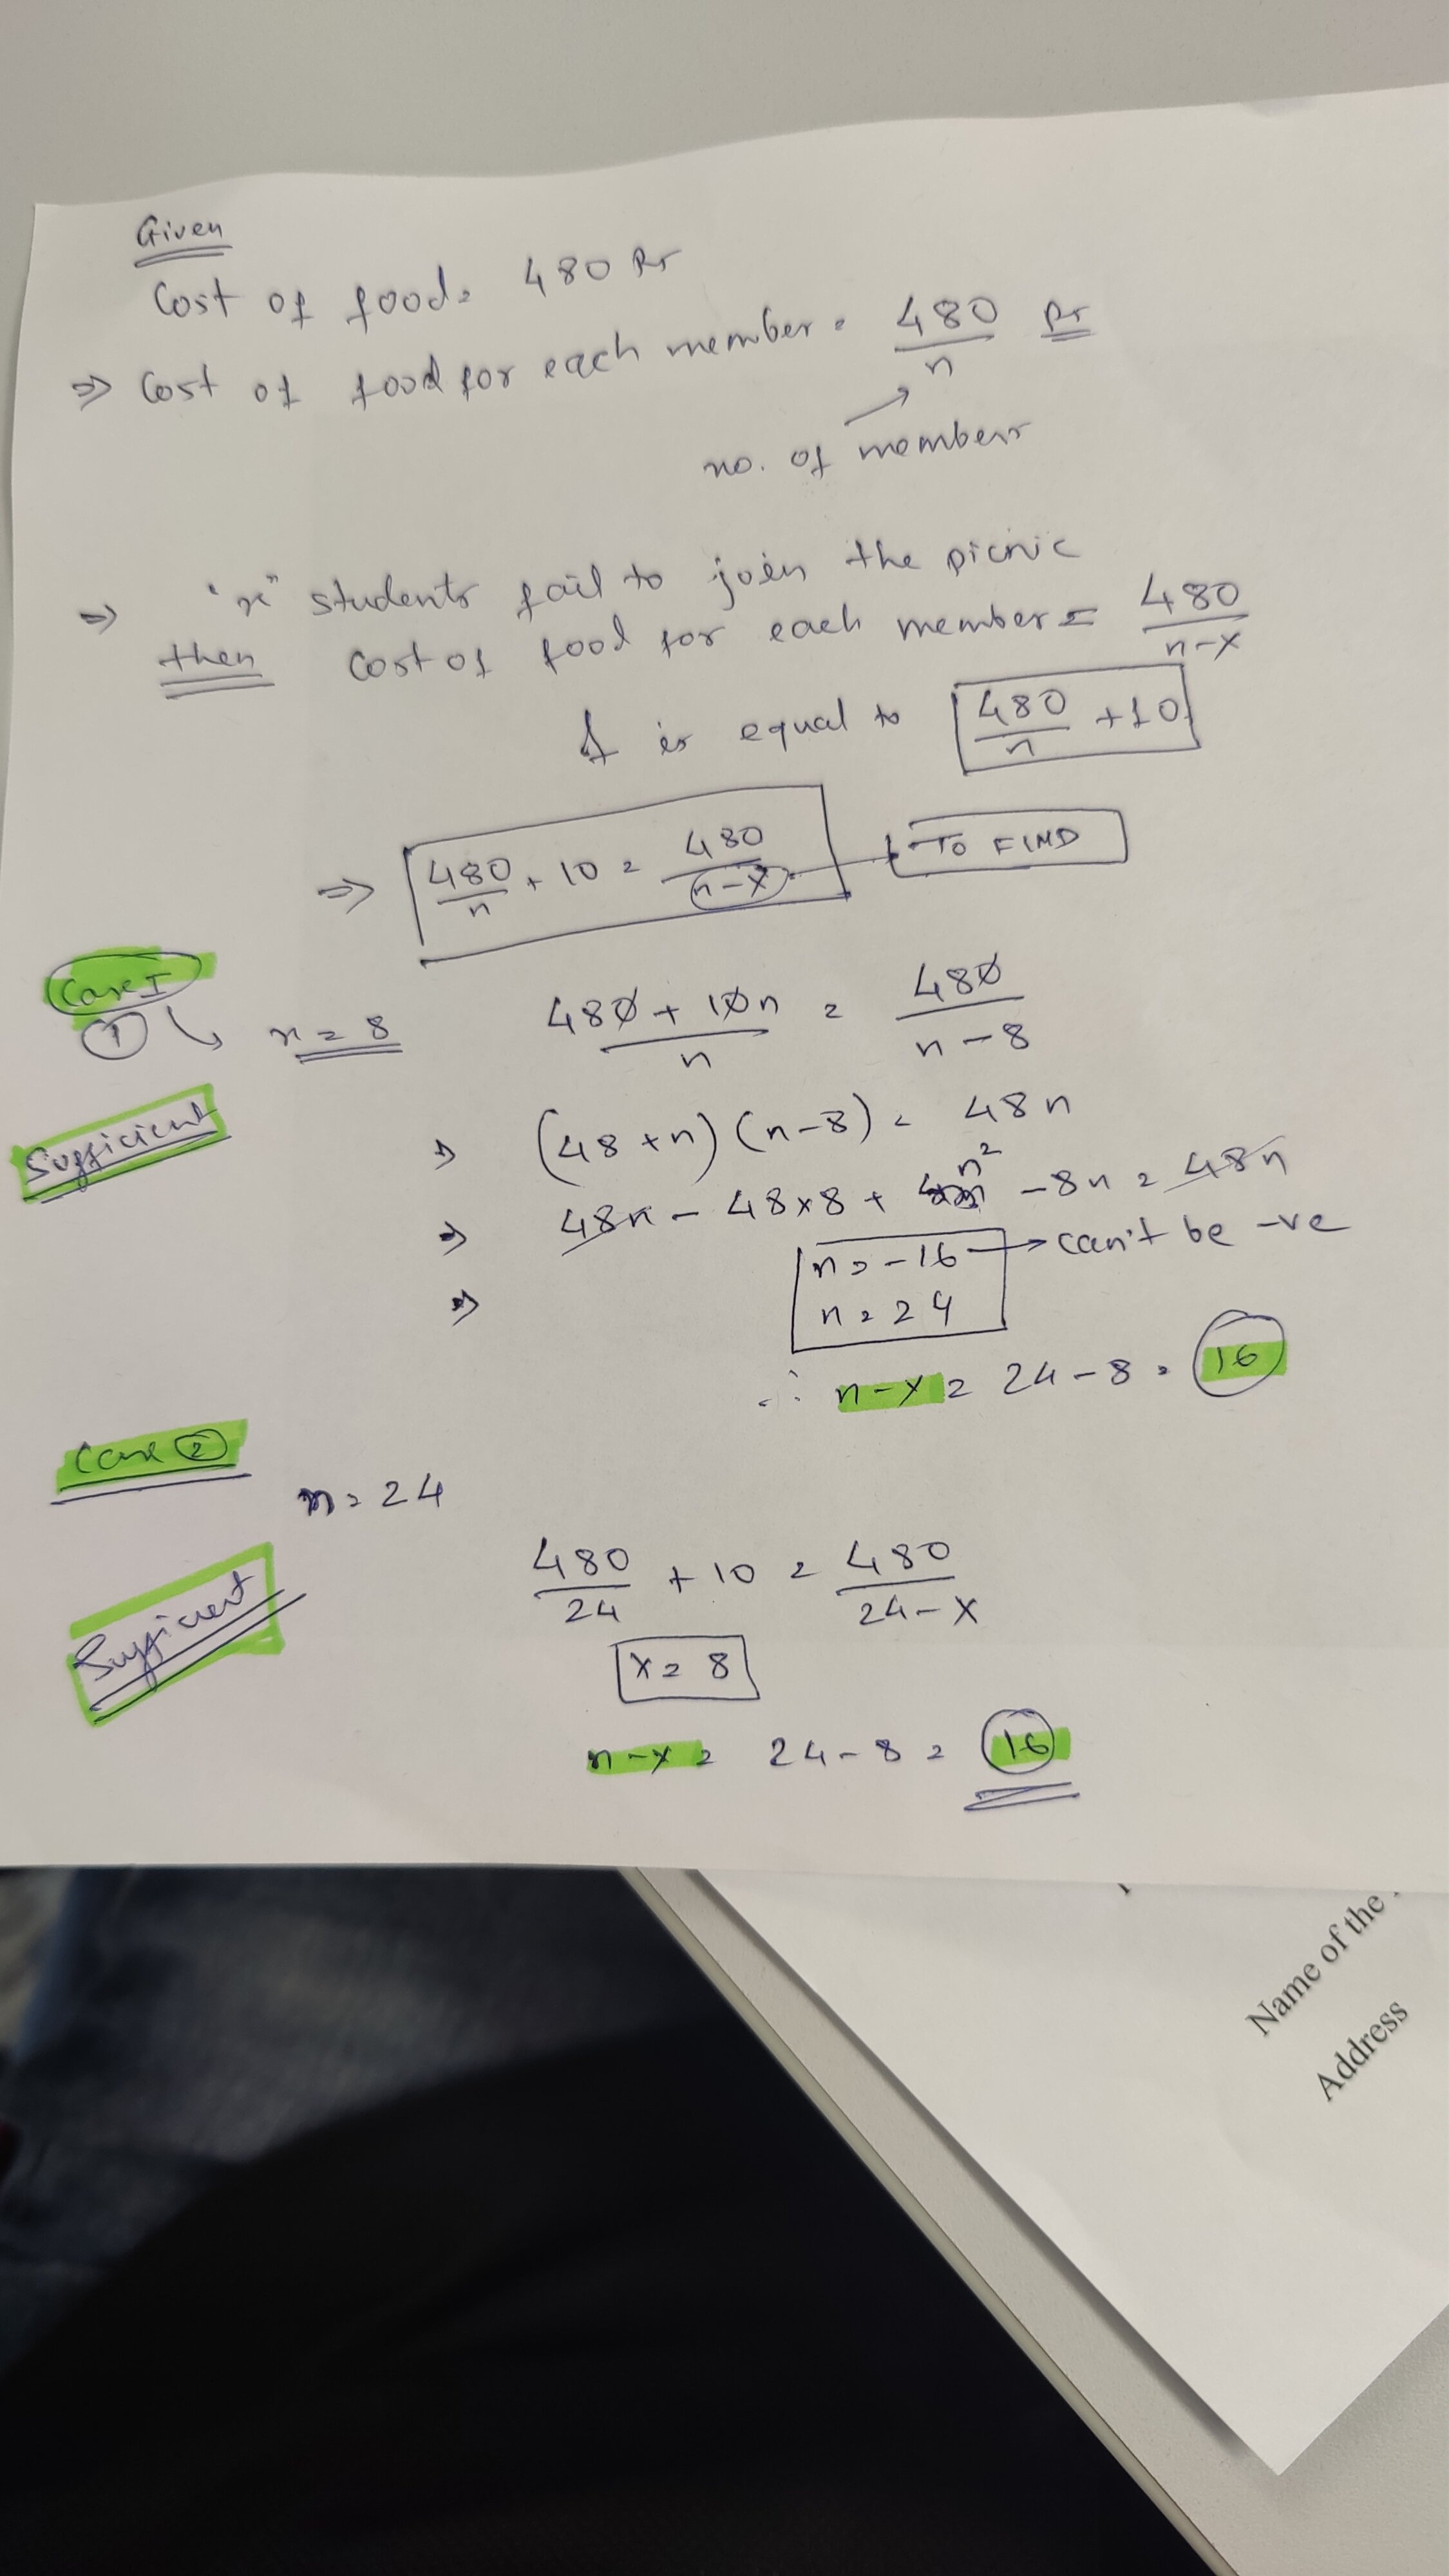 Given
Cost of food = 480 Rs
⇒ Cost of food for each member = 480/n Rs
no. of members
⇒ "x" students fail to join the picnic
then cost of food for each member = 480/n-x
& is equal to 480/n +10
⇒ 480/n + 10 = 480/n-x → TO FIND
Case I
① x = 8 480 + 10n/n = 480/n-8
Sufficient
⇒ (48+n) (n-8) = 48n
⇒ 48n - 48x8 + n² - 8n = 48n
⇒ n = -16 → can't be -ve
n = 24
∴ n-x = 24-8 = 16
Case ②
n = 24
480/24 + 10 = 480/24-x
Sufficient
x = 8
n-x = 24-8 = 16
Name of the
Address